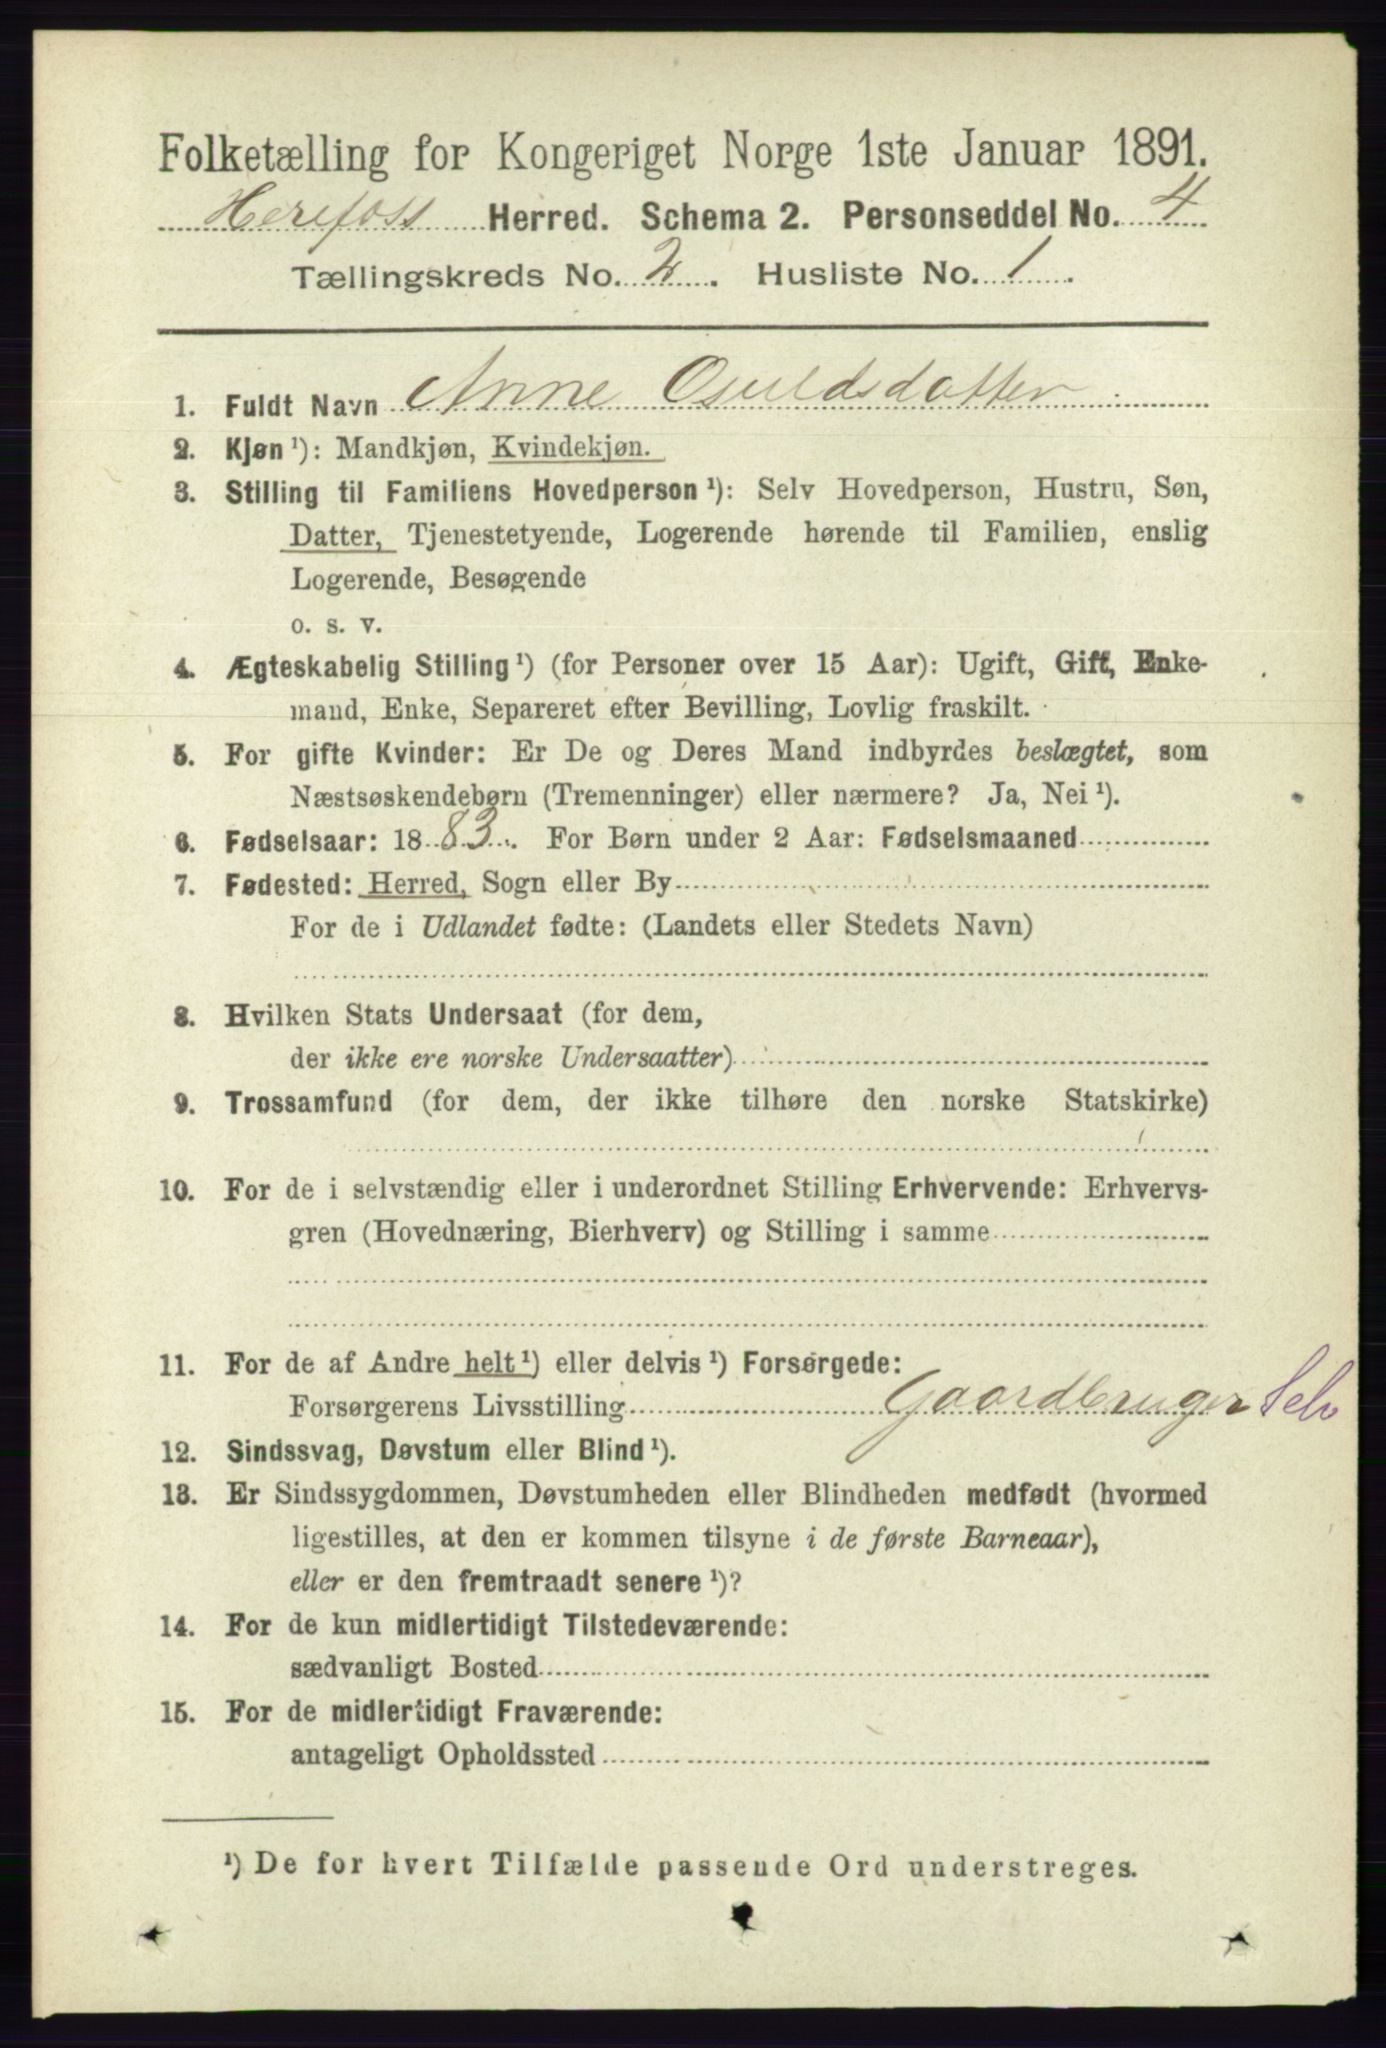 Folketælling for Kongeriget Norge 1ste Januar 1891.
Herefoss Herred. Schema 2. Personseddel No. 4
Tællingskreds No. 2. Husliste No. 1.
1. Fuldt Navn Anne Osuldsdatter
2. Kjøn ¹): Mandkjøn, Kvindekjøn.
3. Stilling til Familiens Hovedperson ¹): Selv Hovedperson, Hustru, Søn,
Datter, Tjenestetyende, Logerende hørende til Familien, enslig
Logerende, Besøgende
o. s. v.
4. Ægteskabelig Stilling ¹) (for Personer over 15 Aar): Ugift, Gift, Enke-
mand, Enke, Separeret efter Bevilling, Lovlig fraskilt.
5. For gifte Kvinder: Er De og Deres Mand indbyrdes beslægtet, som
Næstsøskendebørn (Tremenninger) eller nærmere? Ja, Nei ¹).
6. Fødselsaar: 1883. For Børn under 2 Aar: Fødselsmaaned
7. Fødested: Herred, Sogn eller By
For de i Udlandet fødte: (Landets eller Stedets Navn)
8. Hvilken Stats Undersaat (for dem,
der ikke ere norske Undersaatter)
9. Trossamfund (for dem, der ikke tilhøre den norske Statskirke)
10. For de i selvstændig eller i underordnet Stilling Erhvervende: Erhvervs-
gren (Hovednæring, Bierhverv) og Stilling i samme
11. For de af Andre helt ¹) eller delvis ¹) Forsørgede:
Forsørgerens Livsstilling Gaardbruger Selv
12. Sindssvag, Døvstum eller Blind ¹).
13. Er Sindssygdommen, Døvstumheden eller Blindheden medfødt (hvormed
ligestilles, at den er kommen tilsyne i de første Barneaar),
eller er den fremtraadt senere ¹)?
14. For de kun midlertidigt Tilstedeværende:
sædvanligt Bosted
15. For de midlertidigt Fraværende:
antageligt Opholdssted
¹) De for hvert Tilfælde passende Ord understreges.